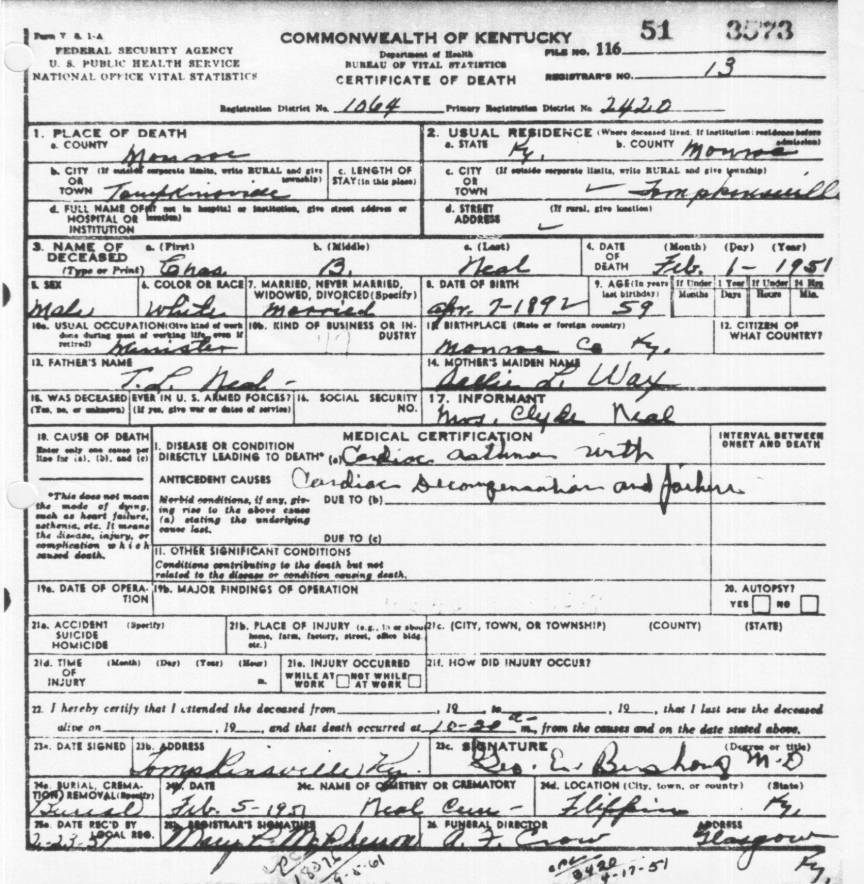 Form V S 1-A
FEDERAL SECURITY AGENCY
U. S. PUBLIC HEALTH SERVICE
NATIONAL OFFICE VITAL STATISTICS
COMMONWEALTH OF KENTUCKY
Department of Health
BUREAU OF VITAL STATISTICS
CERTIFICATE OF DEATH
FILE NO. 116 51 3573
REGISTRAR'S NO. 13
Registration District No. 1064 Primary Registration District No. 2420
1. PLACE OF DEATH
a. COUNTY Monroe
b. CITY (If outside corporate limits, write RURAL and give township)
OR TOWN Tompkinsville
c. LENGTH OF STAY (in this place)
d. FULL NAME OF (If not in hospital or institution, give street address or location)
HOSPITAL OR INSTITUTION
2. USUAL RESIDENCE (Where deceased lived. If institution: residence before admission)
a. STATE Ky. b. COUNTY Monroe
c. CITY (If outside corporate limits, write RURAL and give township)
OR TOWN Tompkinsville
d. STREET ADDRESS (If rural, give location)
3. NAME OF DECEASED (Type or Print)
a. (First) Chas. b. (Middle) B. c. (Last) Neal
4. DATE OF DEATH (Month) (Day) (Year) Feb. 1-1951
5. SEX Male
6. COLOR OR RACE White
7. MARRIED, NEVER MARRIED, WIDOWED, DIVORCED (Specify) Married
8. DATE OF BIRTH Apr. 7-1892
9. AGE (In years last birthday) 59
If Under 1 Year Months Days
If Under 24 Hrs Hours Min.
10a. USUAL OCCUPATION (Give kind of work done during most of working life, even if retired) Minister
10b. KIND OF BUSINESS OR INDUSTRY
11. BIRTHPLACE (State or foreign country) Monroe Co Ky.
12. CITIZEN OF WHAT COUNTRY?
13. FATHER'S NAME T. L. Neal -
14. MOTHER'S MAIDEN NAME L. Wax
15. WAS DECEASED EVER IN U. S. ARMED FORCES? (Yes, no, or unknown) (If yes, give war or dates of service)
16. SOCIAL SECURITY NO.
17. INFORMANT Mrs. Clyde Neal
18. CAUSE OF DEATH
Enter only one cause per line for (a), (b), and (c)
*This does not mean the mode of dying, such as heart failure, asthenia, etc. It means the disease, injury, or complication which caused death.
MEDICAL CERTIFICATION
INTERVAL BETWEEN ONSET AND DEATH
I. DISEASE OR CONDITION
DIRECTLY LEADING TO DEATH* (a) Cardiac asthma with
ANTECEDENT CAUSES Cardiac Decompensation and failure
Morbid conditions, if any, giving rise to the above cause (a) stating the underlying cause last.
DUE TO (b)
DUE TO (c)
II. OTHER SIGNIFICANT CONDITIONS
Conditions contributing to the death but not related to the disease or condition causing death.
19a. DATE OF OPERATION
19b. MAJOR FINDINGS OF OPERATION
20. AUTOPSY?
YES NO
21a. ACCIDENT SUICIDE HOMICIDE (Specify)
21b. PLACE OF INJURY (e.g., in or about home, farm, factory, street, office bldg. etc.)
21c. (CITY, TOWN, OR TOWNSHIP) (COUNTY) (STATE)
21d. TIME OF INJURY (Month) (Day) (Year) (Hour) m.
21e. INJURY OCCURRED
WHILE AT WORK NOT WHILE AT WORK
21f. HOW DID INJURY OCCUR?
22. I hereby certify that I attended the deceased from , 19 to , 19 , that I last saw the deceased
alive on , 19 , and that death occurred at 10-20 m., from the causes and on the date stated above.
23a. DATE SIGNED
23b. ADDRESS Tompkinsville, Ky.
23c. SIGNATURE (Degree or title) Geo. E. Bushong M-D
24a. BURIAL, CREMATION, REMOVAL (Specify) Burial
24b. DATE Feb. 5-1951
24c. NAME OF CEMETERY OR CREMATORY Neal Cem -
24d. LOCATION (City, town, or county) (State) Flippin Ky.
25a. DATE REC'D BY LOCAL REG. 2-23-51
25b. REGISTRAR'S SIGNATURE Mary P. McPherson
26. FUNERAL DIRECTOR A. F. Crow
ADDRESS Glasgow Ky.
18076
4-5-61
3420
4-17-51